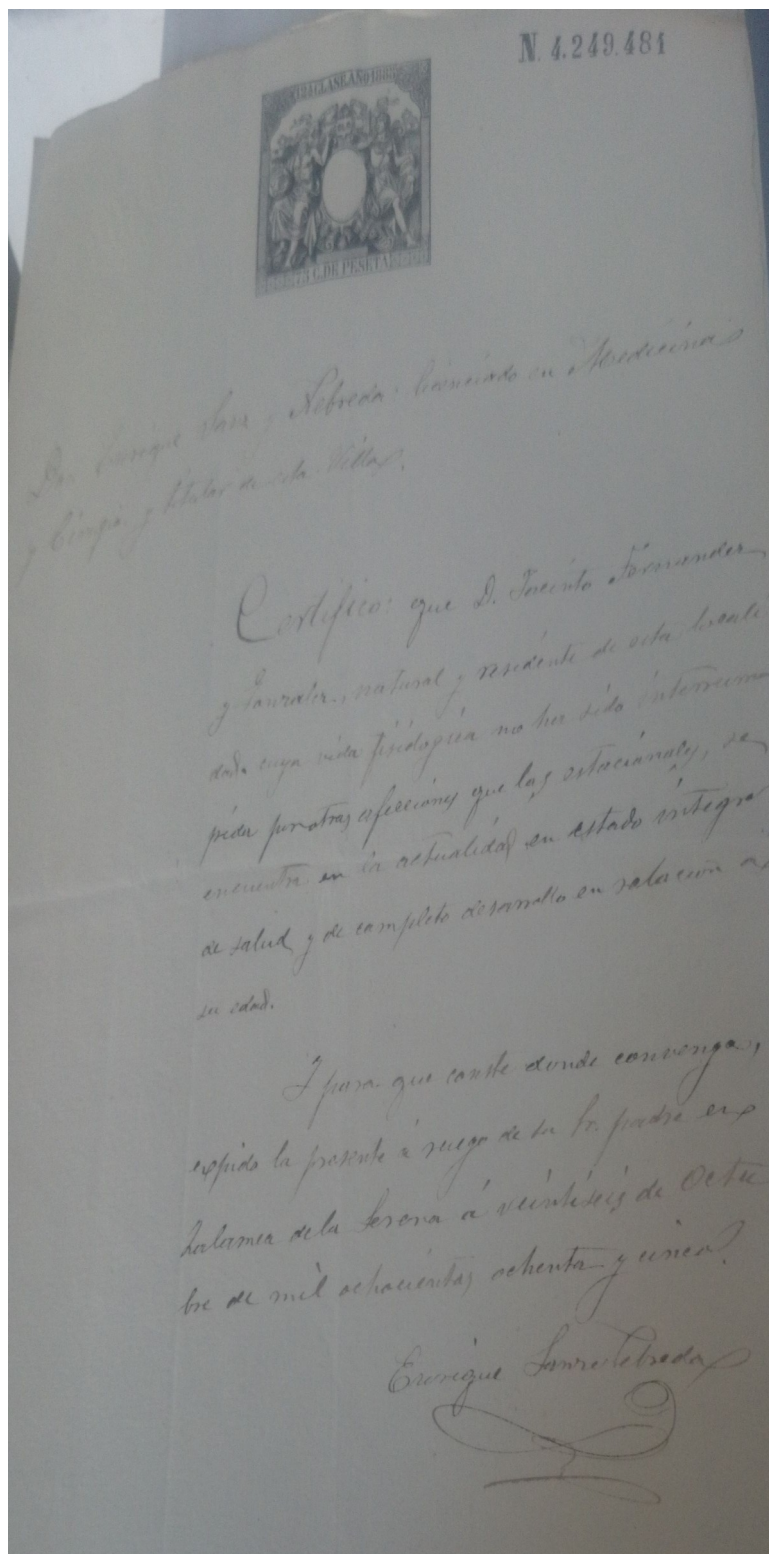 N. 4.249.481
12ª CLASE. AÑO 188
75 C. DE PESETA
Don Enrique Sanz y Nebreda: licenciado en Medicina
y Cirugía y titular de esta Villa.
Certifico: que D. Jacinto Fernandez
y Gonzalez, natural y residente de esta locali
dad, cuya vida fisiológica no ha sido interrum
pida por otras afecciones que las estacionales, se
encuentra en la actualidad en estado íntegro
de salud y de completo desarrollo en relación a
su edad.
Y para que conste donde convenga,
expido la presente á ruego de su Sr. padre en
Zalamea de la Serena á veintiseis de Octu
bre de mil ochocientos ochenta y cinco.
Enrique Sanz Nebreda